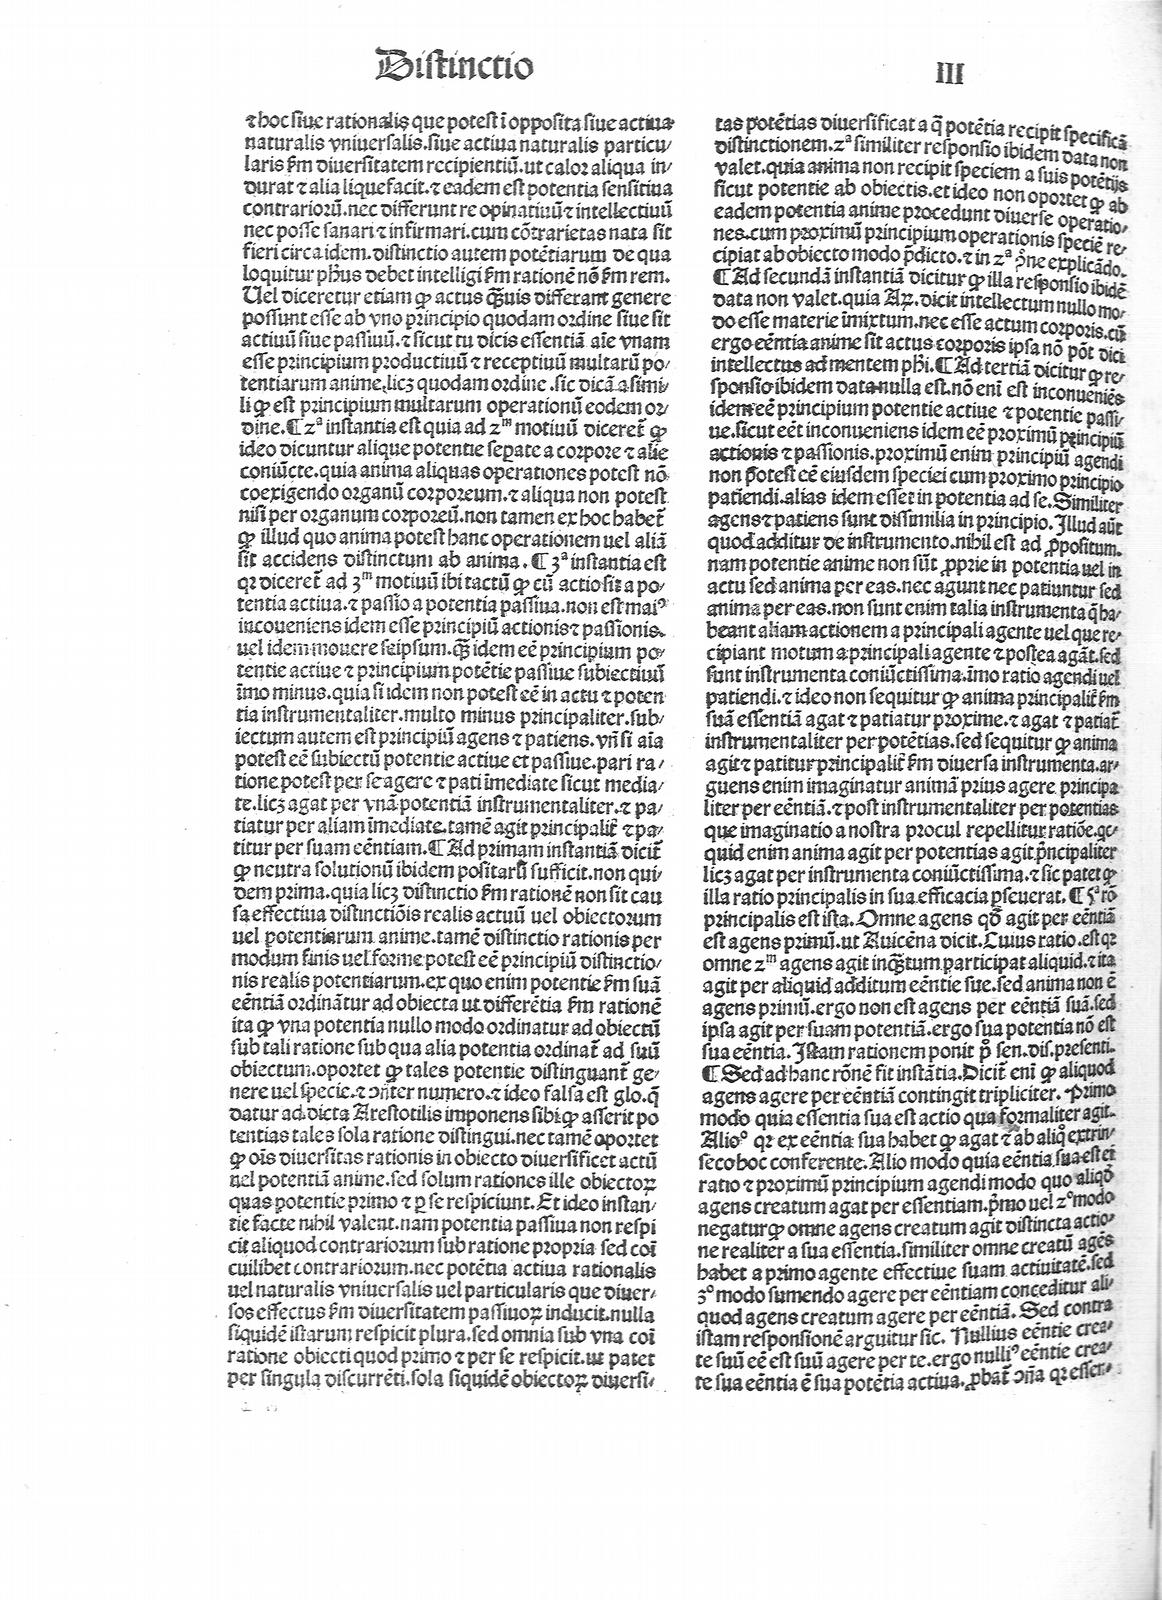 Distinctio
III
⁊ hoc siue rationalis que potest ī opposita siue actiua
naturalis vniuersalis. siue actiua naturalis particu/
laris ẜm diuersitatem recipientiū. ut calor aliqua in/
durat ⁊ alia liquefacit. ⁊ eadem est potentia sensitiua
contrariorū. nec differunt re opinatiuū ⁊ intellectiuū
nec posse sanari ⁊ infirmari. cum cōtrarietas nata sit
fieri circa idem. distinctio autem potētiarum de qua
loquitur ph̄us debet intelligi ẜm rationē nō ẜm rem.
Uel diceretur etiam ꝙ actus q̄̄uis differant genere
possunt esse ab vno principio quodam ordine siue sit
actiuū siue passiuū. ⁊ sicut tu dicis essentiā aīe vnam
esse principium productiuū ⁊ receptiuū multarū po/
tentiarum anime, licꝫ quodam ordine . sic dicā a simi/
li ꝙ est principium multarum operationū eodem or/
dine. ¶ 2ᵃ instantia est quia ad 2ᵐ motiuū diceret̄ ꝙ
ideo dicuntur alique potentie seꝑate a corpore ⁊ alie
coniūcte. quia anima aliquas operationes potest nō
coexigendo organū corporeum. ⁊ aliqua non potest
nisi per organum corporeū. non tamen ex hoc habet̄
ꝙ illud quo anima potest hanc operationem uel aliā
sit accidens distinctum ab anima. ¶ 3ᵃ instantia est
qꝛ diceret̄ ad 3ᵐ motiuū ibi tactū ꝙ cū actio sit a po/
tentia actiua. ⁊ passio a potentia passiua. non est maiꝰ
incoueniens idem esse principiū actionis ⁊ passionis.
uel idem mouere seipsum. q̄̄ idem eē principium po/
tentie actiue ⁊ principium potētie passiue subiectiuū
īmo minus. quia si idem non potest eē in actu ⁊ poten
tia instrumentaliter. multo minus principaliter. sub/
iectum autem est principiū agens ⁊ patiens. vn̄ si aīa
potest eē subiectū potentie actiue et passiue. pari ra/
tione potest per se agere ⁊ pati īmediate sicut media/
te. licꝫ agat per vnā potentiā instrumentaliter. ⁊ pa/
tiatur per aliam īmediate. tamē agit principalit̄ ⁊ pa/
titur per suam eēntiam. ¶ Ad primam instantiā dicit̄
ꝙ neutra solutionū ibidem positarū sufficit. non qui/
dem prima. quia licꝫ distinctio ẜm rationē non sit cau
sa effectiua distinctiōis realis actuū uel obiectorum
uel potentiarum anime. tamē distinctio rationis per
modum finis uel forme potest eē principiū distinctio/
nis realis potentiarum. ex quo enim potentie ẜm suā
eēntiā ordinātur ad obiecta ut differētia ẜm rationē
ita ꝙ vna potentia nullo modo ordinatur ad obiectū
sub tali ratione sub qua alia potentia ordinat̄ ad suū
obiectum. oportet ꝙ tales potentie distinguant̄ ge/
nere uel specie. ⁊ ↄn̄ter numero. ⁊ ideo falsa est glo. q̄
datur ad dicta Arestotilis imponens sibi ꝙ asserit po
tentias tales sola ratione distingui. nec tamē oportet
ꝙ oīs diuersitas rationis in obiecto diuersificet actū
uel potentiā anime. sed solum rationes ille obiectoꝝ
quas potentie primo ⁊ ꝑ se respiciunt. Et ideo instan/
tie facte nihil valent. nam potentia passiua non respi
cit aliquod contrariorum sub ratione propria sed coī
cuilibet contrariorum. nec potētia actiua rationalis
uel naturalis vniuersalis uel particularis que diuer/
sos effectus ẜm diuersitatem passiuoꝝ inducit. nulla
siquidē istarum respicit plura. sed omnia sub vna coī
ratione obiecti quod primo ⁊ per se respicit. ut patet
per singula discurrēti. sola siquidē obiectoꝝ diuersi/
tas potētias diuersificat a q̄ potētia recipit specificā
distinctionem. 2ᵃ similiter responsio ibidem data non
valet. quia anima non recipit speciem a suis potētijs
sicut potentie ab obiectis. et ideo non oportet ꝙ ab
eadem potentia anime procedunt diuerse operatio/
nes. cum proximū principium operationis speciē re/
cipiat ab obiecto modo p̄dicto. ⁊ in 2ᵃ ꝯne explicādo.
¶ Ad secundā instantiā dicitur ꝙ illa responsio ibidē
data non valet. quia Aꝝ. dicit intellectum nullo mo/
do esse materie īmixtum. nec esse actum corporis. cū
ergo eēntia anime sit actus corporis ipsa nō pōt dici
intellectus ad mentem ph̄i. ¶ Ad tertiā dicitur ꝙ re/
sponsio ibidem data nulla est. nō enī est inconueniēs
idem eē principium potentie actiue ⁊ potentie passi/
ue. sicut eēt inconueniens idem eē proximū principiū
actionis ⁊ passionis. proximū enim principiū agendi
non potest eē eiusdem speciei cum proximo principio
patiendi. alias idem esset in potentia ad se. Similiter
agens ⁊ patiens sunt dissimilia in principio. Illud aūt
quod additur de instrumento. nihil est ad ꝓpositum.
nam potentie anime non sūt ꝓprie in potentia uel in
actu sed anima per eas. nec agunt nec patiuntur sed
anima per eas. non sunt enim talia instrumenta q̄ ha/
beant aliam actionem a principali agente uel que re/
cipiant motum a principali agente ⁊ postea agāt. sed
sunt instrumenta coniūctissima. īmo ratio agendi uel
patiendi. ⁊ ideo non sequitur ꝙ anima principalit̄ ẜm
suā essentiā agat ⁊ patiatur proxime. ⁊ agat ⁊ patiat̄
instrumentaliter per potētias. sed sequitur ꝙ anima
agit ⁊ patitur principalit̄ ẜm diuersa instrumenta. ar/
guens enim imaginatur animā prius agere principa
liter per eēntiā. ⁊ post instrumentaliter per potentias
que imaginatio a nostra procul repellitur ratiōe. qc/
quid enim anima agit per potentias agit p̄ncipaliter
licꝫ agat per instrumenta coniūctissima. ⁊ sic patet ꝙ
illa ratio principalis in sua efficacia ꝑseuerat. ¶ 5ᵃ rō
principalis est ista. Omne agens qd̄ agit per eēntiā
est agens primū. ut Auicēna dicit. Cuius ratio. est qꝛ
omne 2ᵐ agens agit inq̄̄tum participat aliquid. ⁊ ita
agit per aliquid additum eēntie sue. sed anima non ē
agens primū. ergo non est agens per eēntiā suā. sed
ipsa agit per suam potentiā. ergo sua potentia nō est
sua eēntia. Istam rationem ponit pº sen. dis. presenti.
¶ Sed ad hanc rōnē fit instātia. Dicit̄ enī ꝙ aliquod
agens agere per eēntiā contingit tripliciter. Primo
modo quia essentia sua est actio qua formaliter agit.
Alioº qꝛ ex eēntia sua habet ꝙ agat ⁊ ab aliqº extrin/
seco hoc conferente. Alio modo quia eēntia sua est ei
ratio ⁊ proximū principium agendi modo quo aliqd̄
agens creatum agat per essentiam. p̄mo uel 2º modo
negatur ꝙ omne agens creatum agit distincta actio/
ne realiter a sua essentia. similiter omne creatū agēs
habet a primo agente effectiue suam actiuitatē. sed
3º modo sumendo agere per eēntiam conceditur ali/
quod agens creatum agere per eēntiā. Sed contra
istam responsionē arguitur sic. Nullius eēntie crea/
te suū eē est suū agere per te. ergo nulliꝰ eēntie crea/
te sua eēntia ē sua potētia actiua. ꝓbat̄ ↄn̄a qꝛ essen/